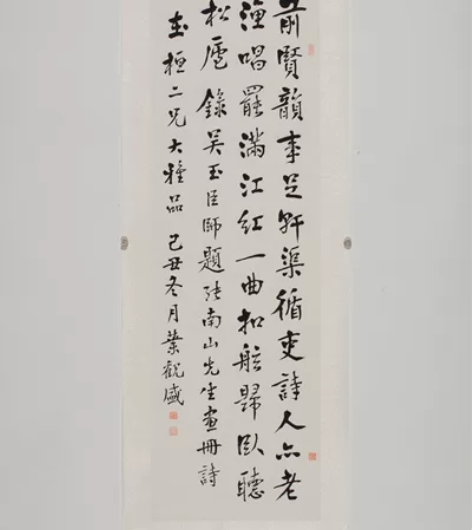 前賢韻事足軒渠循吏詩人亦老
漁唱罷滿江紅一曲扣舷歸臥聽
松廬錄吳玉臣師題張南山先生畫冊詩
桓二兄大雅品 己丑冬月葉觀盛